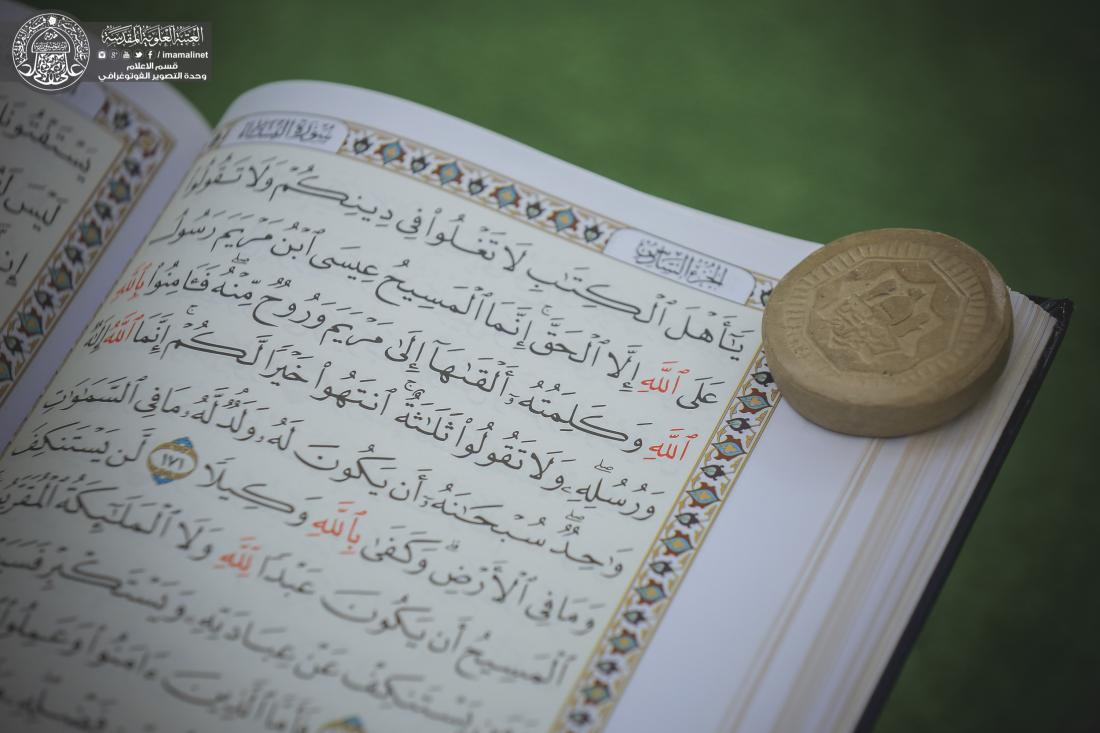 العتبة العلوية المقدسة
/ imamalinet
قسم الاعلام
وحدة التصوير الفوتوغرافي
سُورَةُ النِّسَاءِ
الجُزْءُ السَّادِسُ
يَسْتَفْتُونَكَ
لَيْسَ
يَٰٓأَهْلَ ٱلْكِتَٰبِ لَا تَغْلُوا۟ فِى دِينِكُمْ وَلَا تَقُولُوا۟
عَلَى ٱللَّهِ إِلَّا ٱلْحَقَّ ۚ إِنَّمَا ٱلْمَسِيحُ عِيسَى ٱبْنُ مَرْيَمَ رَسُولُ
ٱللَّهِ وَكَلِمَتُهُۥٓ أَلْقَىٰهَآ إِلَىٰ مَرْيَمَ وَرُوحٌ مِّنْهُ ۖ فَـَٔامِنُوا۟ بِٱللَّهِ
وَرُسُلِهِۦ ۖ وَلَا تَقُولُوا۟ ثَلَٰثَةٌ ۚ ٱنتَهُوا۟ خَيْرًا لَّكُمْ ۚ إِنَّمَا ٱللَّهُ إِلَٰهٌ
وَٰحِدٌ ۖ سُبْحَٰنَهُۥٓ أَن يَكُونَ لَهُۥ وَلَدٌ ۘ لَّهُۥ مَا فِى ٱلسَّمَٰوَٰتِ
وَمَا فِى ٱلْأَرْضِ ۗ وَكَفَىٰ بِٱللَّهِ وَكِيلًا ١٧١ لَّن يَسْتَنكِفَ
ٱلْمَسِيحُ أَن يَكُونَ عَبْدًا لِّلَّهِ وَلَا ٱلْمَلَٰٓئِكَةُ ٱلْمُقَرَّبُونَ
يَسْتَنكِفْ عَنْ عِبَادَتِهِۦ وَيَسْتَكْبِرْ
فَأَمَّا ٱلَّذِينَ ءَامَنُوا۟ وَعَمِلُوا۟
فَضْلِهِۦ